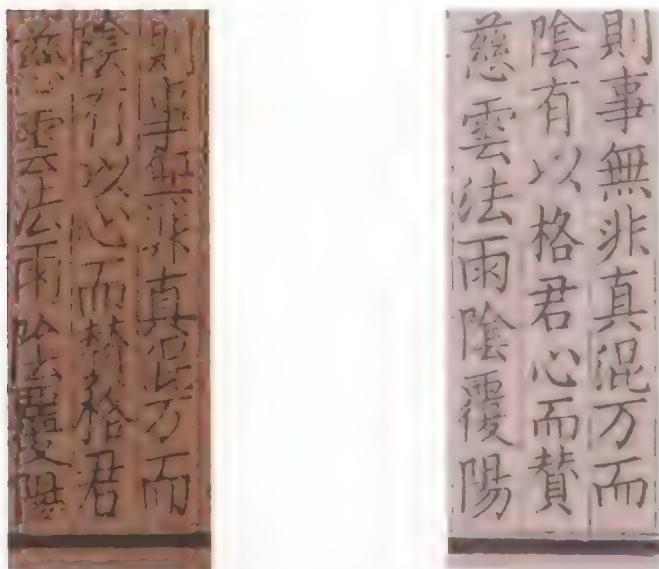 則事無非真混万而
陰有以心而賛格君
慈雲法雨陰覆陽
則事無非真混万而
陰有以格君心而賛
慈雲法雨陰覆陽